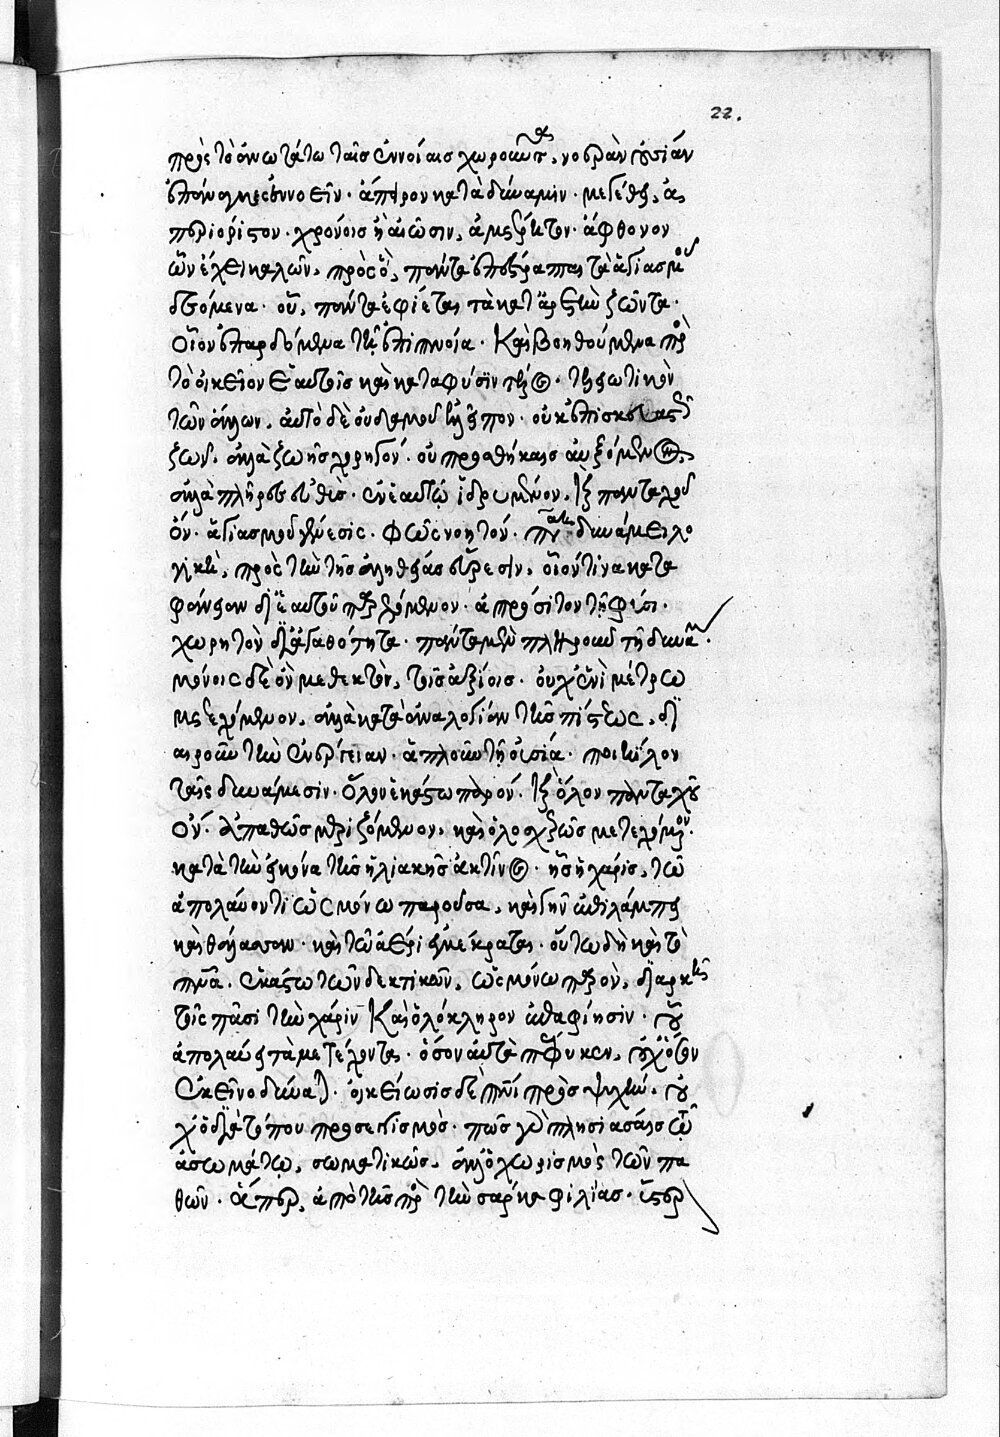 22.
πρὸς τὸ ἀνωτάτω ταῖς ἐννοίαις χωροῦντα, νοερὰν οὐσίαν
ἐπάναγκες ἐννοεῖν· ἄπειρον κατὰ δύναμιν· μεγέθει, ἀ
περιόριστον· χρόνοις ἢ αἰῶσιν, ἀμέτρητον· ἄφθονον
ὧν ἔχει καλῶν, πρὸς ὃ, πάντα ἐπέστραπται τὰ ἁγιασμοῦ
δεόμενα· οὗ, πάντα ἐφίεται τὰ κατ' ἀρετὴν ζῶντα·
οἷον ἐπαρδόμενα τῇ ἐπιπνοία· καὶ βοηθούμενα πρὸς
τὸ οἰκεῖον ἑαυτοῖς καὶ κατα φύσιν τέλος· τελειωτικὸν
τῶν ἄλλων, αὐτὸ δὲ οὐδαμοῦ ἐλλεῖπον· οὐκ ἐπισκευαστῶς
ζῶν, ἀλλὰ ζωῆς χορηγόν· οὐ προσθήκαις αὐξόμενον,
ἀλλὰ πλῆρες εὐθὺς· ἐν ἑαυτῷ ἱδρυμένον, καὶ πανταχοῦ
ὄν· ἁγιασμοῦ γένεσις· φῶς νοητόν· πάσῃ δυνάμει λο
γικῇ, πρὸς τὴν τῆς ἀληθείας εὕρεσιν, οἷον τινα κατα
φάνειαν δι' ἑαυτοῦ παρεχόμενον· ἀπρόσιτον τῇ φύσει·
χωρητὸν δι' ἀγαθότητα· πάντα μὲν πληροῦν τῇ δυνάμει·
μόνοις δὲ ὂν μεθεκτὸν, τοῖς ἀξίοις· οὐχ ἑνὶ μέτρω
μετεχόμενον, ἀλλὰ κατὰ ἀναλογίαν τῆς πίστεως, δι
αιροῦν τὴν ἐνέργειαν· ἁπλοῦν τῇ οὐσία· ποικίλον
ταῖς δυνάμεσιν· ὅλον ἑκάστω παρόν· καὶ ὅλον πανταχοῦ
ὄν· ἀπαθῶς μεριζόμενον, καὶ ὁλοσχερῶς μετεχόμενον·
κατὰ τὴν εἰκόνα τῆς ἡλιακῆς ἀκτῖνος· ἧς ἡ χάρις, τῶ
ἀπολαύοντι ὡς μόνω παροῦσα, καὶ γῆν ἐπιλάμπει
καὶ θάλασσαν· καὶ τῶ ἀέρι ἐγκέκραται· οὕτω δὴ καὶ τὸ
πνα· ἑκάστω τῶν δεκτικῶν, ὡς μόνω παρὸν, διαρκῆ
τοῖς πᾶσι τὴν χάριν καὶ ὁλόκληρον ἐπαφίησιν· οὗ
ἀπολαύει τὰ μετέχοντα· ὅσον αὐτὰ πέφυκεν, οὐχ ὅσον
ἐκεῖνο δύναται· οἰκείωσις δὲ πνι πρὸς ψυχὴν, οὐ
χ ὁ διὰ τόπου προσεγγισμὸς· πῶς γὰρ πλησιάσαις τῷ
ἀσωμάτῳ, σωματικῶς, ἀλλ' ὁ χωρισμὸς τῶν πα
θῶν· ἅπερ, ἀπὸ τῆς πρὸς τὴν σάρκα φιλίας· ὕστερ